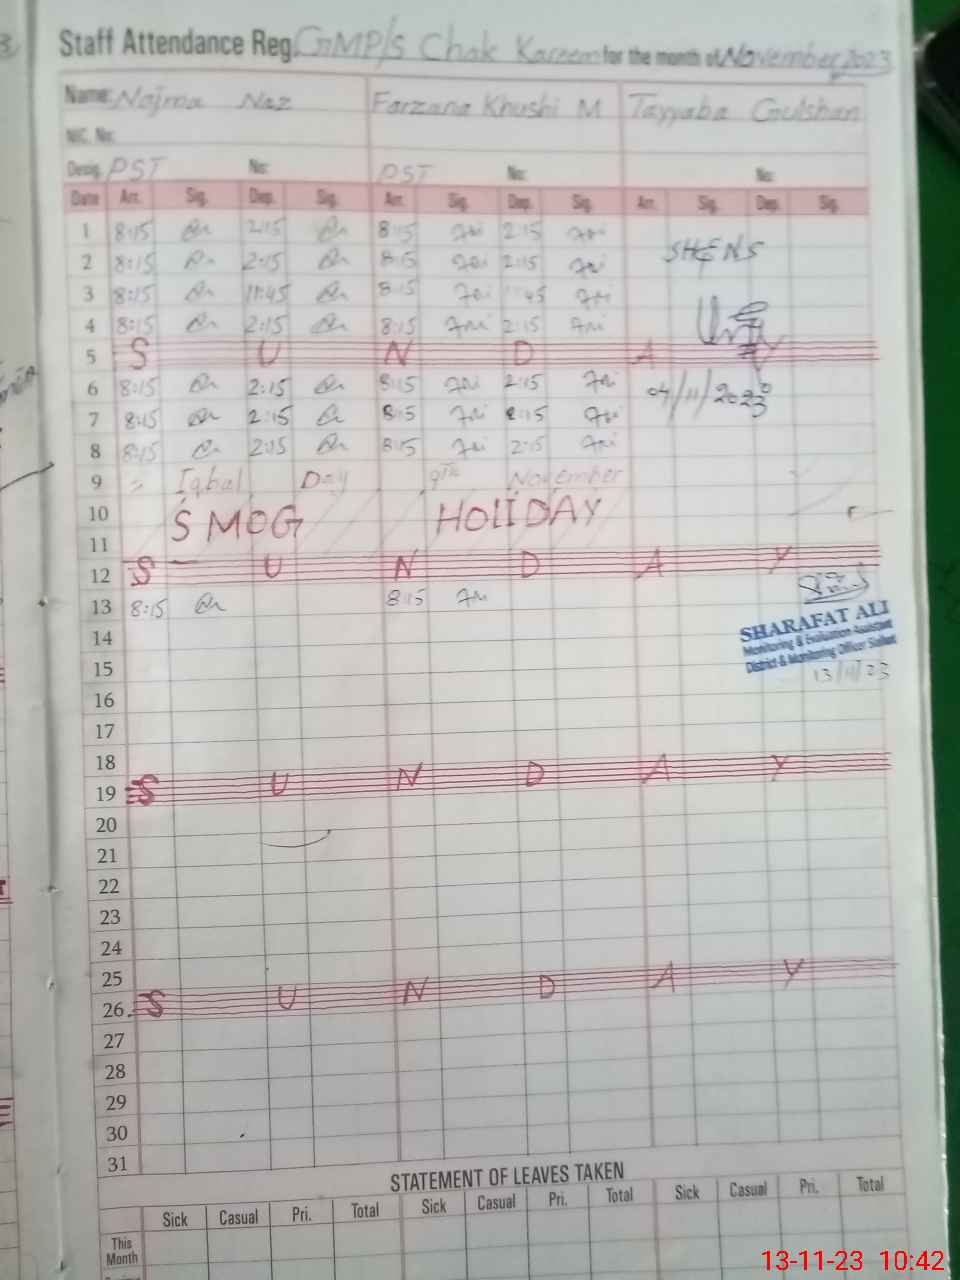 Staff Attendance Reg. GMP/s Chak Kareem for the month of November, 2023
Name: Najma Naz Farzana Khushi M Tayyaba Gulshan
NIC. No:
Desig. PST No: PST No: No:
Date Arr. Sig. Dep. Sig. Arr. Sig. Dep. Sig. Arr. Sig. Dep. Sig.
1 8:15 2:15 8:15 2:15
2 8:15 2:15 8:15 2:15
3 8:15 11:45 8:15 11:45
4 8:15 2:15 8:15 2:15
5 S U N D A Y
6 8:15 2:15 8:15 2:15 04/11/2023
7 8:15 2:15 8:15 2:15
8 8:15 2:15 8:15 2:15
9 Iqbal Day 9th November
10 SMOG HOLIDAY
11
12 S U N D A Y
13 8:15 8:15
SHARAFAT ALI
Monitoring & Evaluation Assistant
District & Monitoring Officer Sialkot
13/11/23
14
15
16
17
18
19 S U N D A Y
20
21
22
23
24
25
26 S U N D A Y
27
28
29
30
31
STATEMENT OF LEAVES TAKEN
Sick Casual Pri. Total Sick Casual Pri. Total Sick Casual Pri. Total
This
Month
13-11-23 10:42